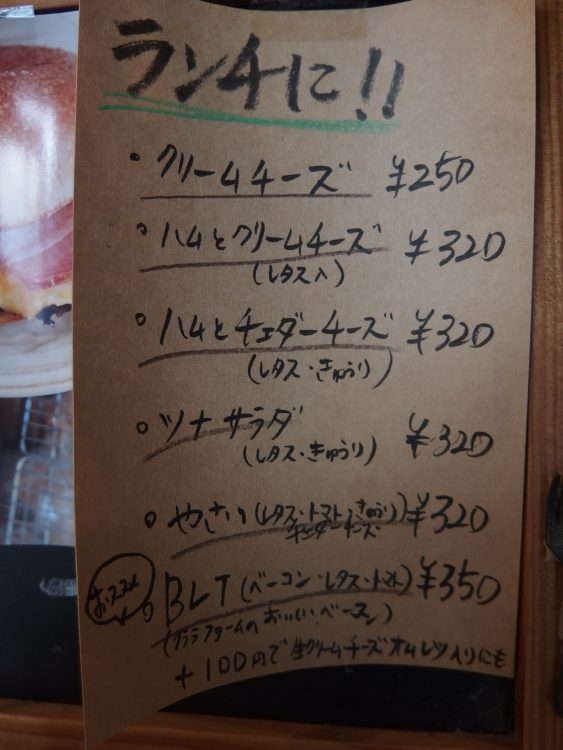 ランチに!!
・クリームチーズ ¥250
・ハムとクリームチーズ ¥320
(レタス入)
・ハムとチェダーチーズ ¥320
(レタス・きゅうり)
・ツナサラダ ¥320
(レタス・きゅうり)
・やさい(レタス・トマト・きゅうり ¥320
チェダーチーズ)
おススメ
・BLT(ベーコン・レタス・トマト) ¥350
ファームのおいしいベーコン)
+100円で生クリームチーズオムレツ入りにも